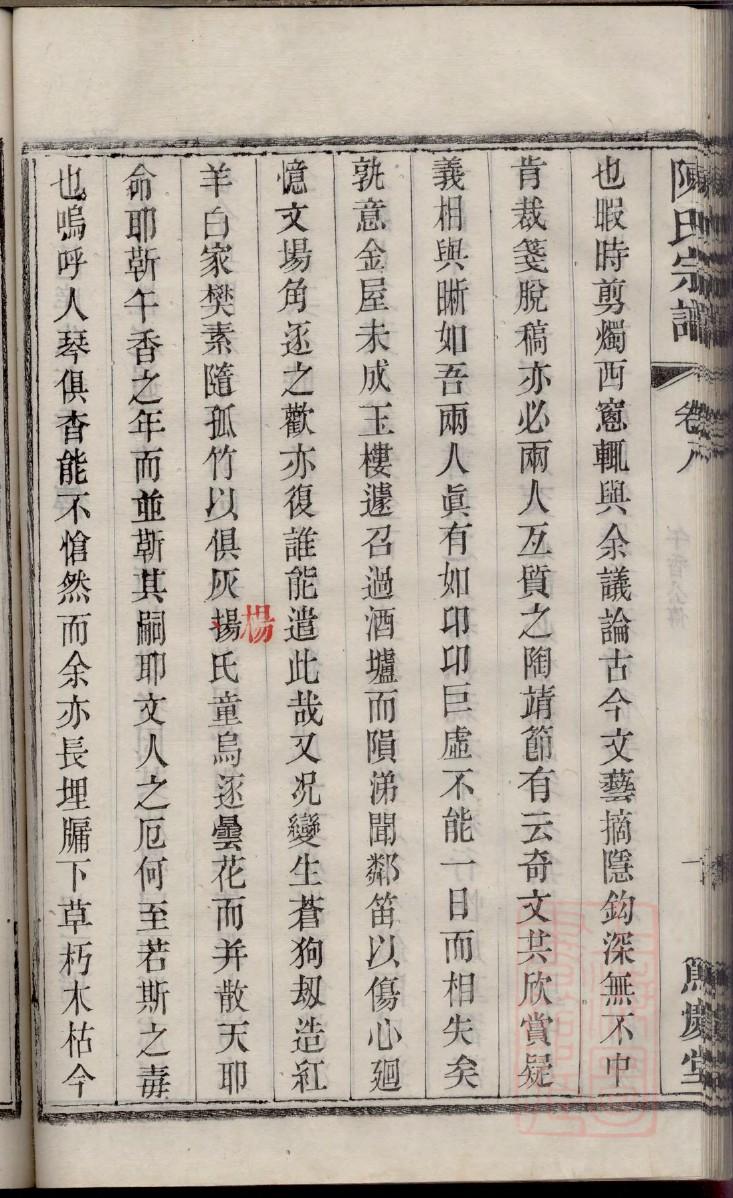 陳氏宗譜 卷八 篤慶堂
也暇時剪燭西窻輒與余議論古今文藝摘隱鈎深無不中
肯裁箋脫稿亦必兩人互質之陶靖節有云奇文共欣賞疑
義相與晰如吾兩人眞有如邛邛巨虛不能一日而相失矣
孰意金屋未成玉樓遽召過酒壚而隕涕聞鄰笛以傷心廻
憶文場角逐之歡亦復誰能遣此哉又況變生蒼狗刼造紅
羊白家樊素隨孤竹以俱灰揚氏童烏逐曇花而并散天耶
楊
命耶靳午香之年而並靳其嗣耶文人之厄何至若斯之毒
也嗚呼人琴俱杳能不愴然而余亦長埋牖下草朽木枯今